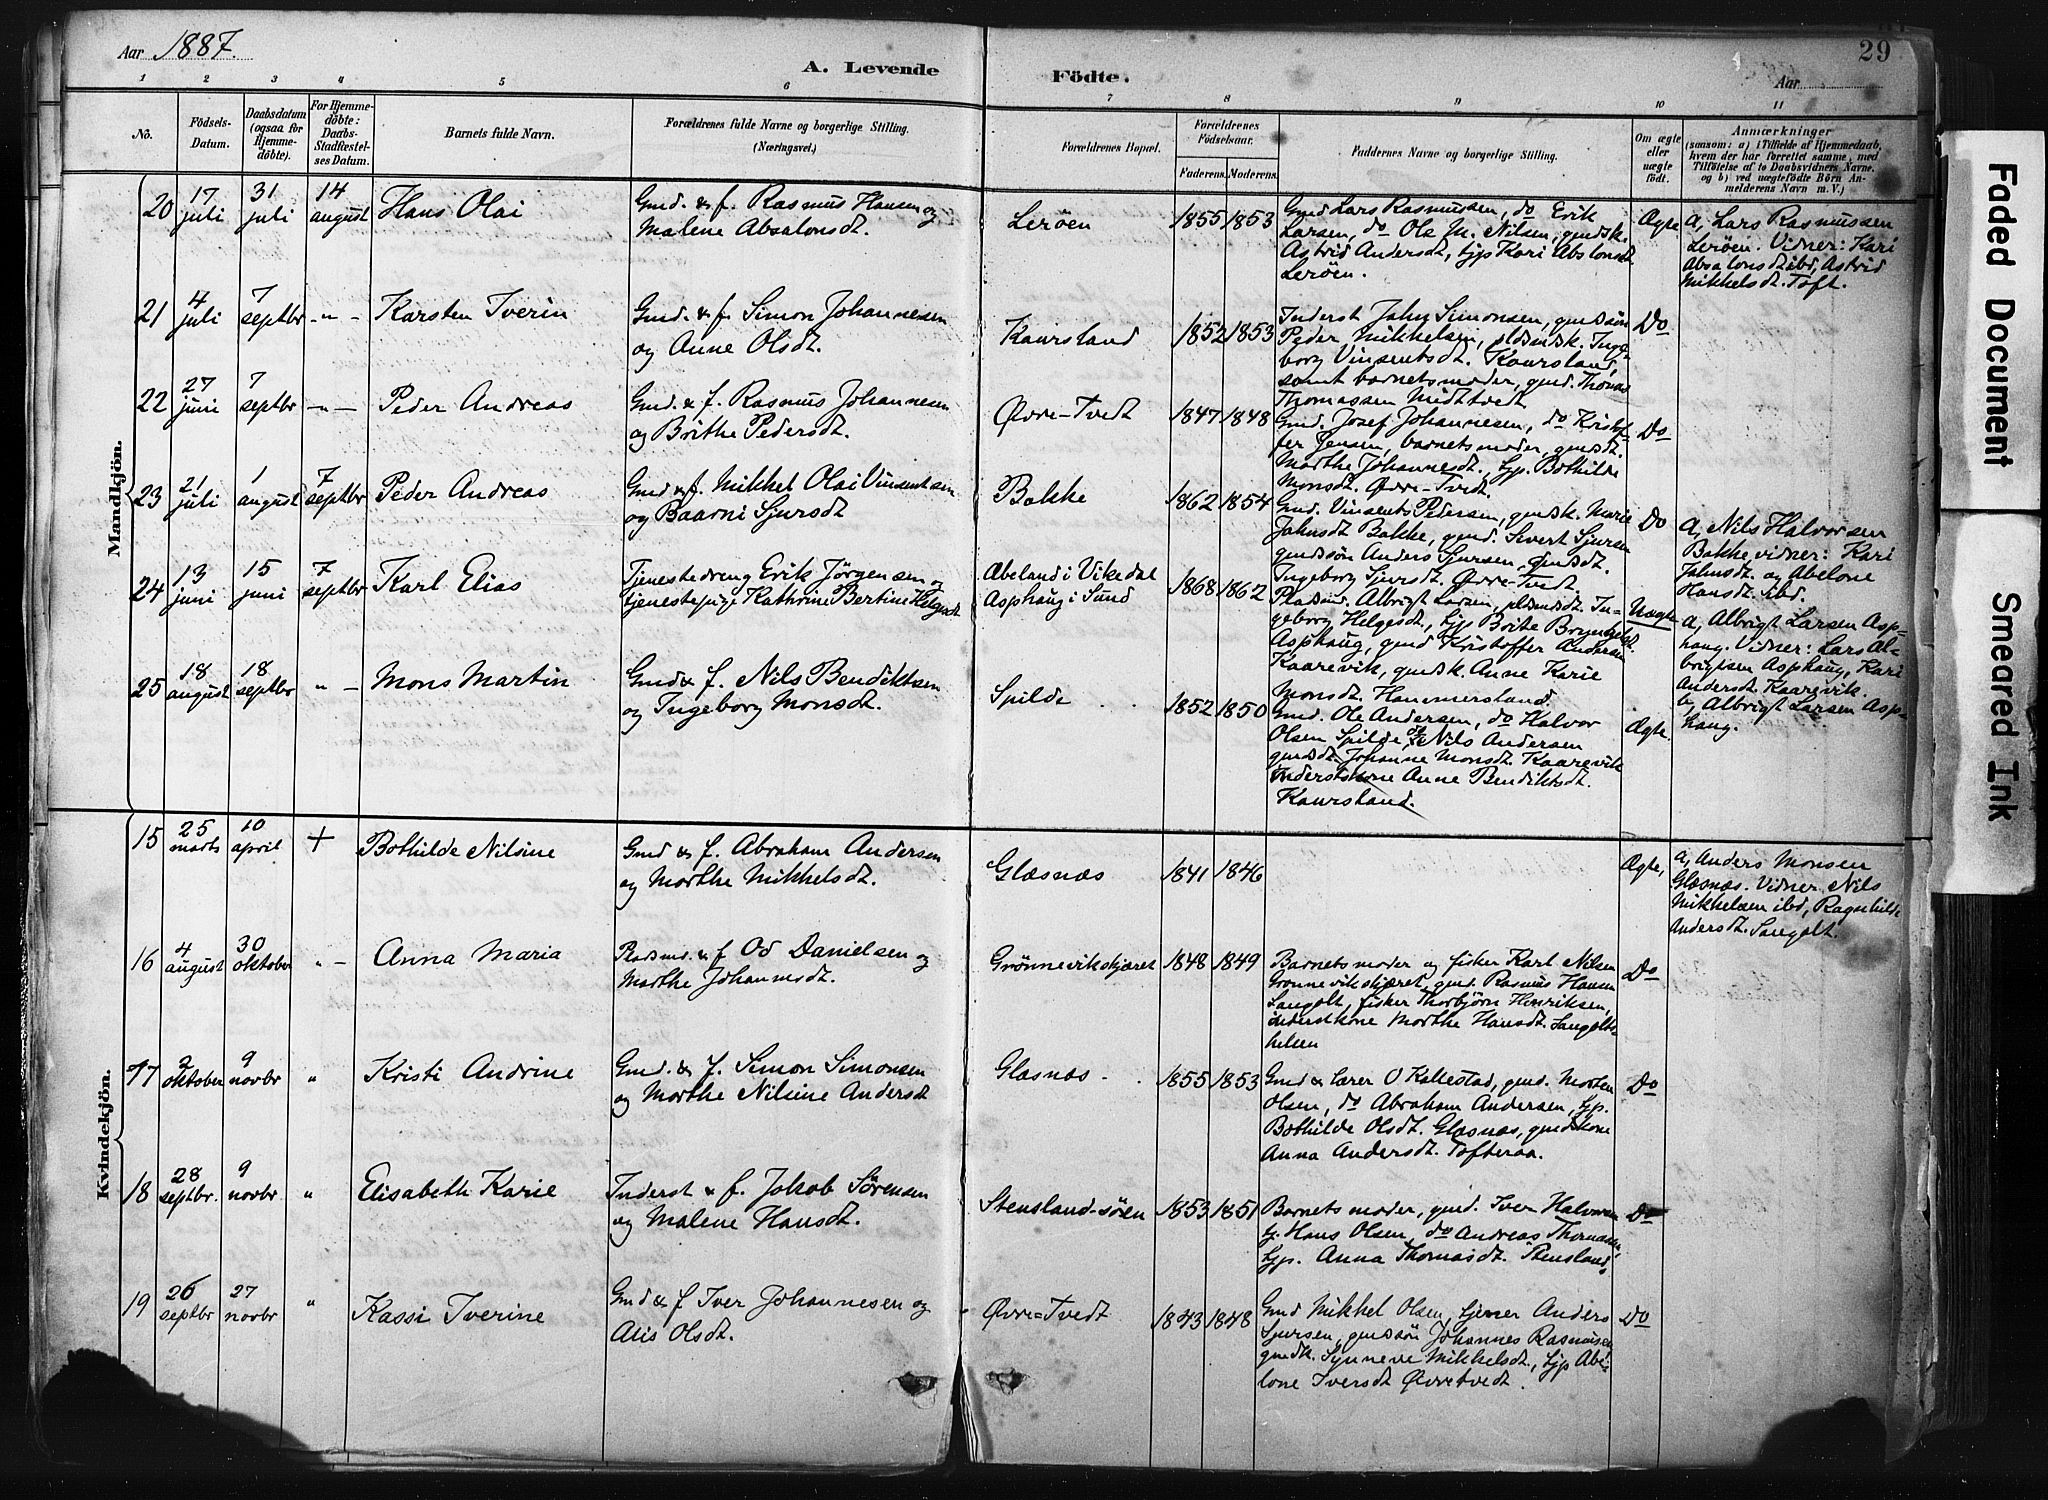 Aar 1887. A. Levende Födte. Aar 29
1 2 3 4 5 6 7 8 9 10 11
No.
Födsels-
Datum.
Daabsdatum
(ogsaa for
Hjemme-
döbte).
For Hjemme-
döbte:
Daabs-
Stadfæstel-
ses Datum.
Barnets fulde Navn.
Forældrenes fulde Navne og borgerlige Stilling.
(Næringsvei.)
Forældrenes Bopæl.
Forældrenes
Födselsaar.
Faderens. Moderens.
Faddernes Navne og borgerlige Stilling.
Om ægte
eller
uægte
födt.
Anmærkninger
(saasom: a) i Tilfælde af Hjemmedaab,
hvem der har forrettet samme, med
Tilföielse af to Daabsvidners Navne,
og b) ved uægtefödte Börn An-
melderens Navn m. V.)
Mandkjön.
20 17 juli 31 juli 14 august Hans Olai
Gmd. & f. Rasmus Hansen og
Malene Absalonsdt.
Leröen 1855 1853
Gmd Lars Rasmussen, do Erik
Larsen, do Ole M. Nilsen, gmdsk.
Astrid Andersdt, tjp Kari Abslonsdt.
Leröen.
Ægte
a, Lars Rasmussen
Leröen. Vidner: Kari
Absalonsdt ibd, Astrid
Mikkelsdt. Toft.
21 4 juli 7 septbr -"- Karsten Iverin
Gmd. & f. Simon Johannesen
og Anne Olsdt.
Kaursland 1852 1853
Inderst Jahn Simonsen, gmdsön
Peder Mikkelsen, plsmdsk. Inge-
borg Vinsentsdt. Kaursland,
samt barnets moder, gmd. Thomas
Thomassen Midttvedt
Do
22 27 juni 7 septbr -"- Peder Andreas
Gmd. & f. Rasmus Johannesen
og Brithe Pedersdt.
Øvre-Tvedt 1847 1848
Gmd. Josef Johannesen, do Kristof-
fer Jensen, barnets moder, gmdsdt.
Marthe Johannesdt., tjp. Bothilde
Monsdt. Øvre-Tvedt.
Do
23 21 juli 1 august 7 septbr Peder Andreas
Gmd & f. Mikkel Olai Vinsentsen
og Baarni Sjursdt
Bakke 1862 1854
Gmd. Vinsents Pedersen, gmdsk. Marie
Jahnsdt Bakke, gmd. Sivert Sjursen
gmdssön Anders Sjursen, gmdsdt.
Ingeborg Sjursdt. Øvre-Tvedt.
Do
a, Nils Halvorsen
Bakke vidner: Kari
Jahnsdt. og Abelone
Hansdt. ibd.
24 13 juni 15 juni 7 septbr Karl Elias
Tjenestedreng Erik Jörgensen og
tjenestepige Kathrine Bertine Helgesdt
Abeland i Vikedal
Asphaug i Sund
1868 1862
Pladsmd. Albrigt Larsen, plsmdsdt. In-
geborg Helgesdt., tjp Brite Bryngelsdt.
Asphaug, gmd Kristoffer Andersen
Kaarevik, gmdsk. Anne Karie
Monsdt. Hammersland.
Uægte
a, Albrigt Larsen Asp-
haug. Vidner: Lars Al-
brigtsen Asphaug, Kari
Andersdt. Kaarevik.
b, Albrigt Larsen Asp-
haug.
25 18 august 18 septbr "- Mons Martin
Gmd & f. Nils Bendiktsen
og Ingeborg Monsdt.
Spilde 1852 1850
Gmd. Ole Andersen, do Halvor
Olsen Spilde, Nils Andersen
gmdsdt. Johanne Monsdt. Kaarevik
Inderstkone Anne Bendiktsdt.
Kaursland.
Ægte.
Kvindekjön.
15 25 marts 10 april + Bothilde Nilsine
Gmd & f. Abraham Andersen
og Marthe Mikkelsdt.
Glæsnæs 1841 1846
Ægte,
a, Anders Monsen
Glæsnæs. Vidner Nils
Mikkelsen ibd, Ragnhilde
Andersdt. Sangolt.
16 4 august 30 oktober "- Anna Maria
Pladsmd. & f Od Danielsen og
Marthe Johannesdt.
Grönnevikskjæret 1848 1849
Barnets moder og fisker Karl Nilsen
Grönnevikskjæret, gmd. Rasmus Hansen
Sangolt, fisker Thorbjörn Henriksen,
inderstkone Marthe Hansdt. Sangolts-
helsen
Do
17 2 oktober 9 novbr " Kristi Andrine
Gmd. & f. Simon Simonsen
og Marthe Nilsine Andersdt
Glæsnæs 1855 1853
Gmd & Lærer O Kallestad, gmd. Morten
Olsen, do Abraham Andersen, tjp.
Bothilde Olsdt. Glæsnæs, gmdskone
Anna Andersdt. Tofteraa.
Do
18 28 septbr. 9 novbr " Elisabeth Karie
Inderst & f. Jokob Sörensen
og Malene Hansdt.
Stensland-söen 1853 1851
Barnets moder, gmd. Iver Halvorsen
tj. Hans Olsen, do Andreas Thomassen,
tjp. Anna Thomasdt. Stensland,
Do
19 26 septbr 27 novbr " Kassi Iverine
Gmd & f Iver Johannesen og
Alis Olsdt.
Øvre-Tvedt 1843 1848
Gmd Mikkel Olsen, tjener Anders
Sjursen, gmdssön Johannes Rasmusen
gmdk. Synneve Mikkelsdt., tjp Abe-
lone Iversdt Øvretvedt.
Do
Faded Document
Smeared Ink